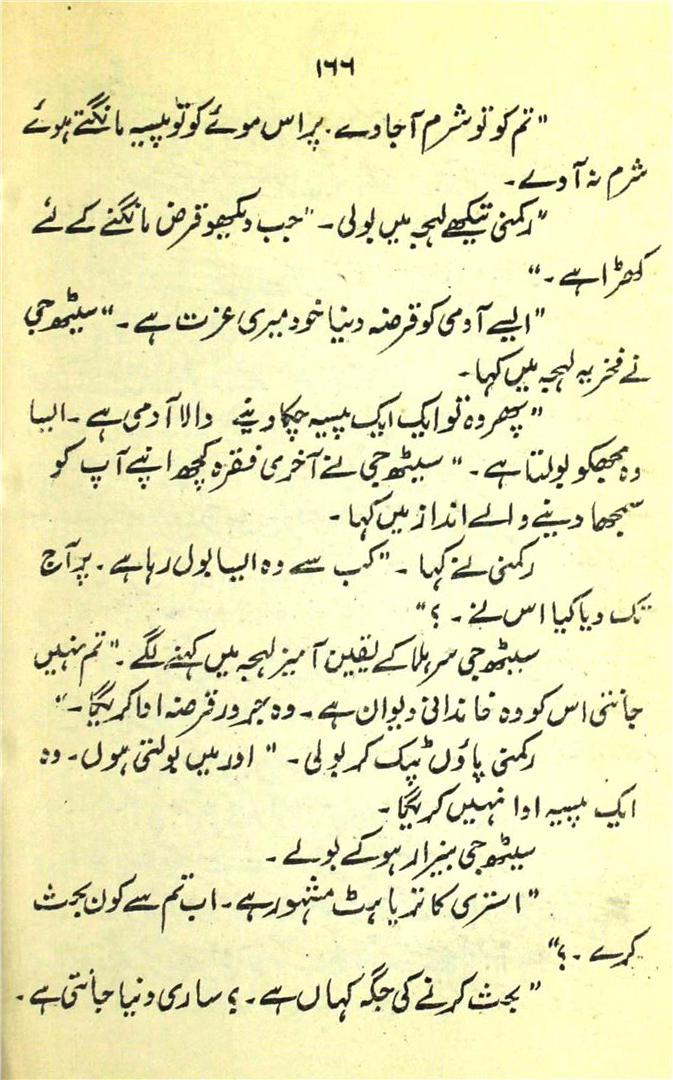 ۱۶۶
"تم کو تو شرم آجاوے۔ پر اس موئے کو تو پیسہ مانگتے ہوئے
شرم نہ آوے۔
"رکمنی تیکھے لہجہ میں بولی۔ "جب دیکھو قرض مانگنے کے لئے
کھڑا ہے۔"
"ایسے آدمی کو قرضہ دینا خود میری عزت ہے۔" سیٹھ جی
نے فخریہ لہجہ میں کہا۔
"پھر وہ تو ایک ایک پیسہ چکا دینے والا آدمی ہے۔ ایسا
وہ مجھکو بولتا ہے۔" سیٹھ جی نے آخری فقرہ کچھ اپنے آپ کو
سمجھا دینے والے انداز میں کہا۔
رکمنی نے کہا۔ "کب سے وہ ایسا بول رہا ہے۔ پر آج
تک دیا کیا اس نے۔؟"
سیٹھ جی سر ہلا کے یقین آمیز لہجہ میں کہنے لگے۔ "تم نہیں
جانتی اس کو وہ خاندانی دیوان ہے۔ وہ ضرور قرضہ ادا کریگا۔"
رکمنی پاؤں پٹک کر بولی۔ "اور میں بولتی ہوں۔ وہ
ایک پیسہ ادا نہیں کریگا۔
سیٹھ جی بیزار ہوکے بولے۔
"استری کا تریا ہٹ مشہور ہے۔ اب تم سے کون بحث
کرے۔؟"
"بحث کرنے کی جگہ کہاں ہے۔؟ ساری دنیا جانتی ہے۔